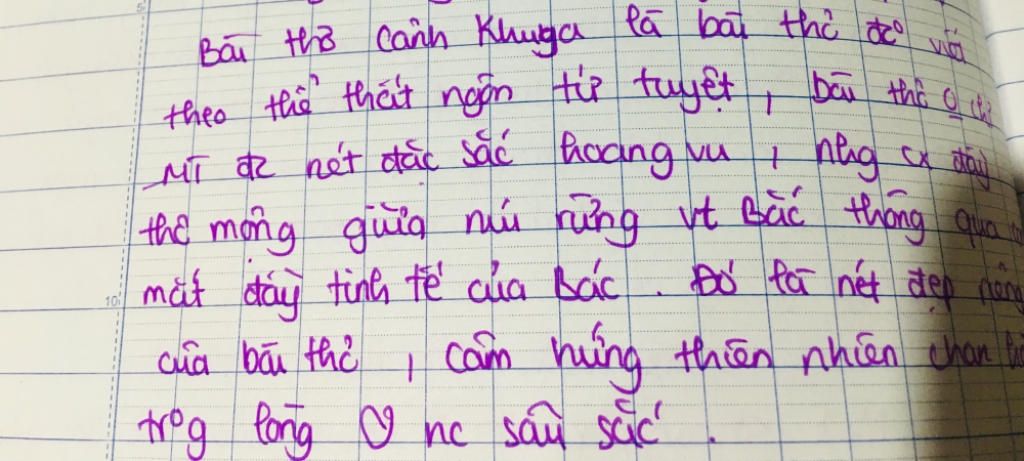 Bài thơ Cảnh Khuya là bài thơ đc viết
theo thể thất ngôn tứ tuyệt, bài thơ o chỉ
MT đc nét đặc sắc hoang vu, nhg cx đầy
thơ mộng giữa núi rừng vt Bắc thông qua
mắt đầy tinh tế của Bác. Đó là nét đẹp
của bài thơ, cảm hứng thiên nhiên chan
trog lòng y nc sâu sắc.